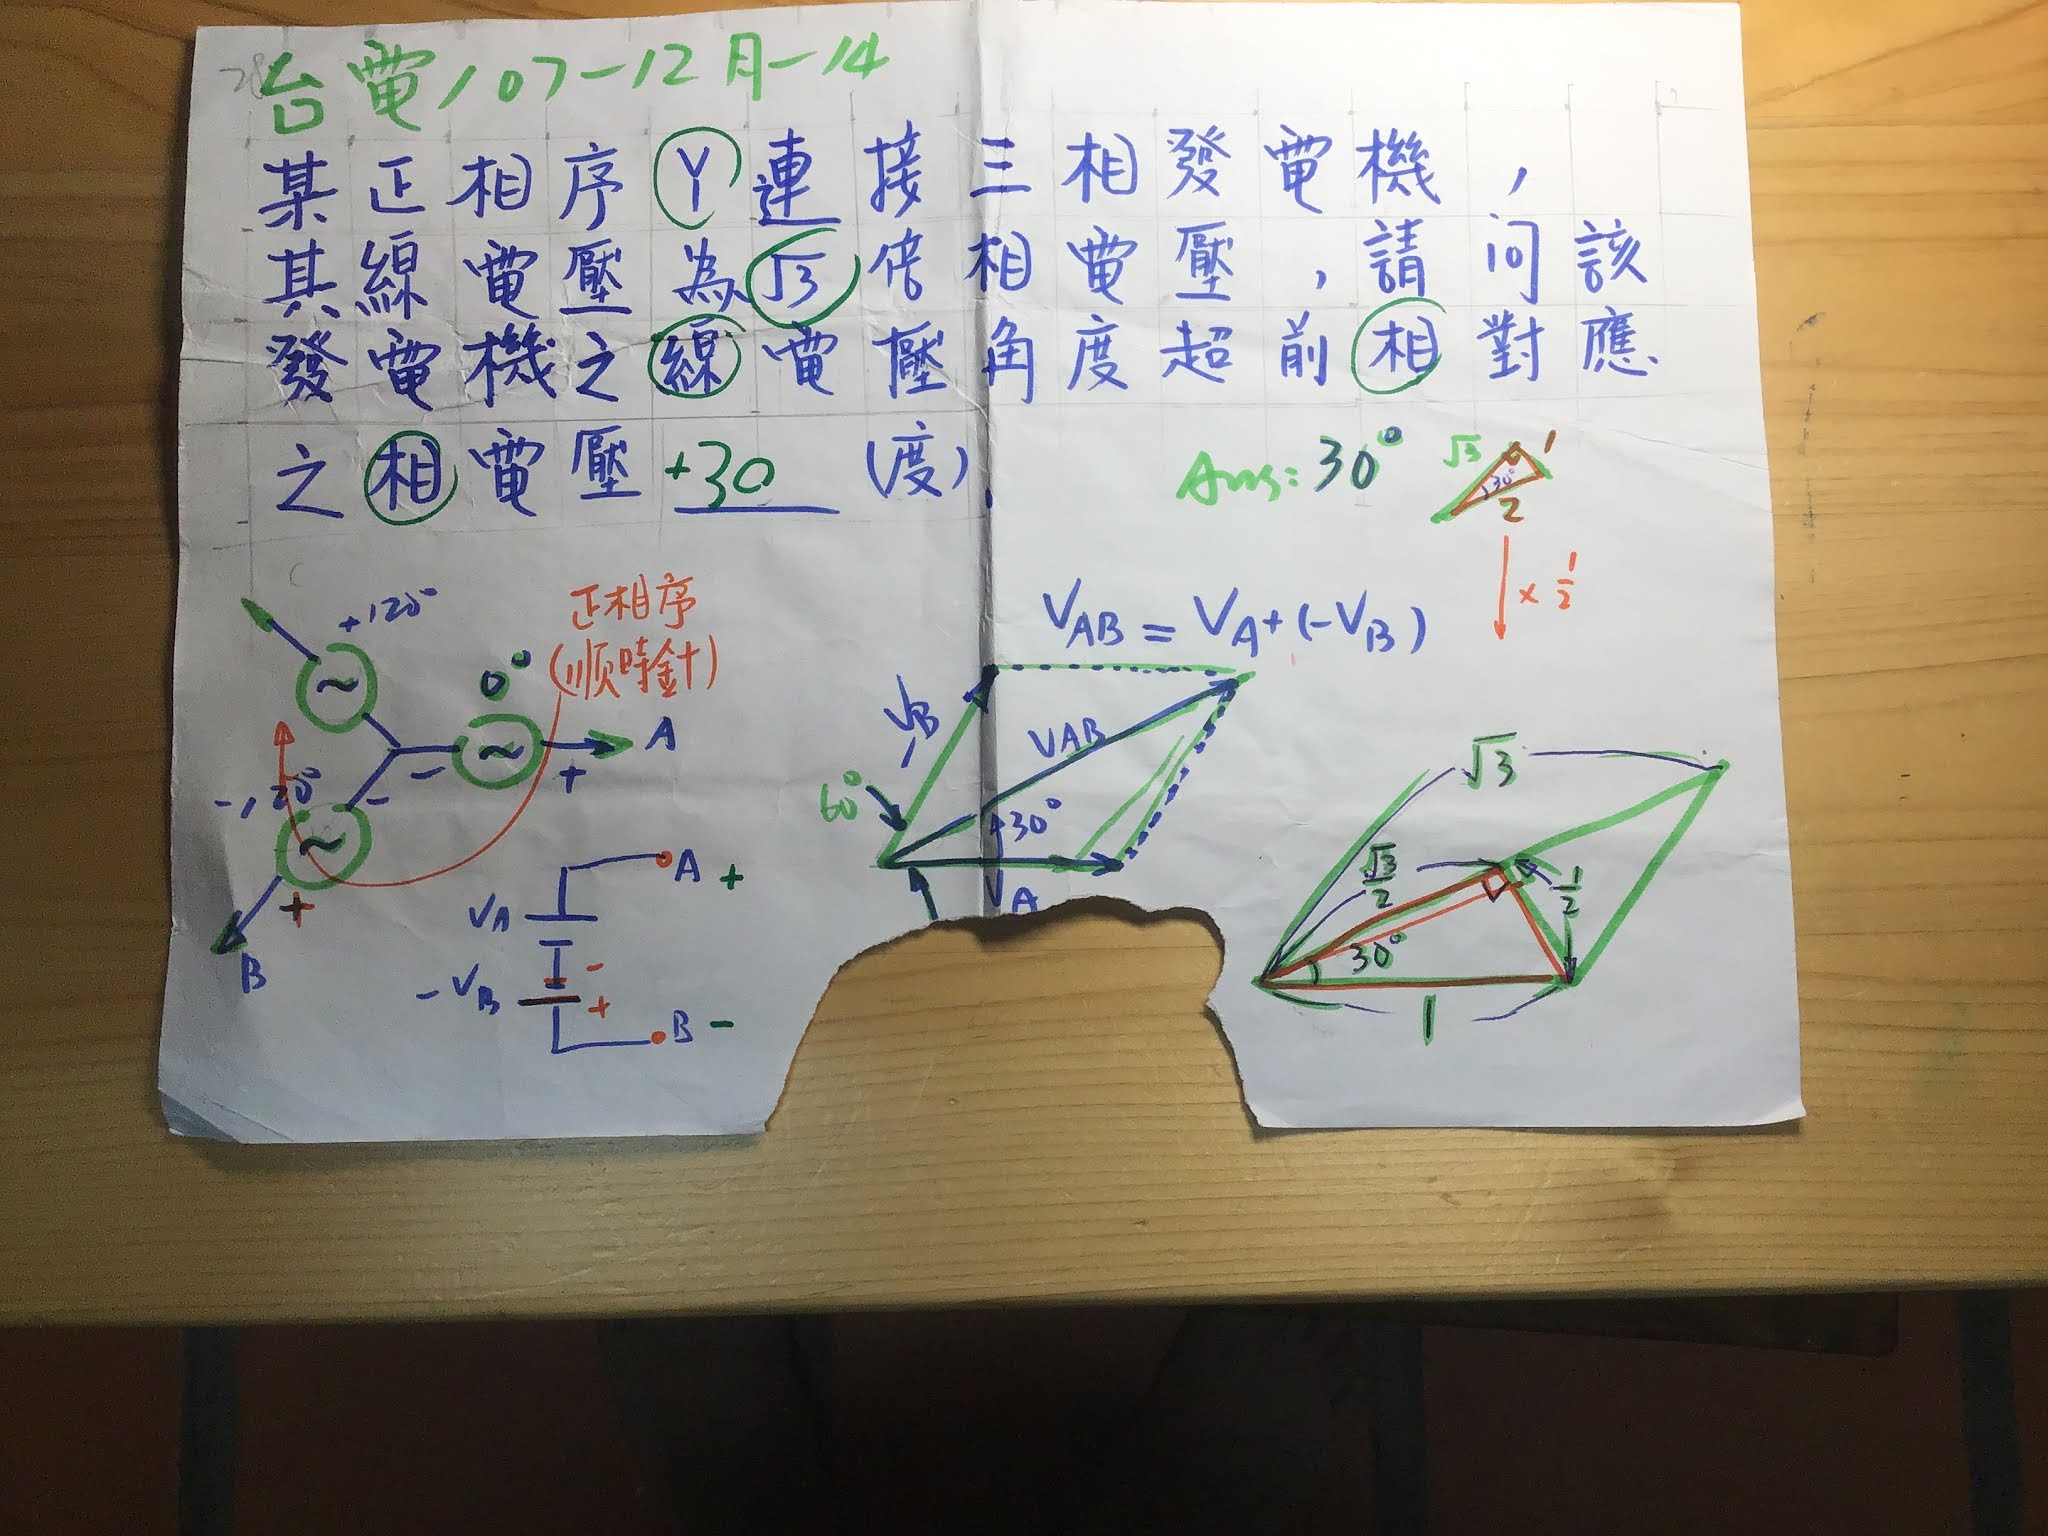 台電107-12月-14
某正相序Y連接三相發電機，
其線電壓為√3倍相電壓，請問該
發電機之線電壓角度超前相對應
之相電壓+30 (度).
Ans: 30°
√3 1
30°
2
× 1/2
+120°
正相序
(順時針)
0°
A
+
-
-120°
-
+
B
V_AB = V_A + (-V_B)
VAB
60°
+30°
V_A
V_A
A +
-V_B
-
+
B -
√3
√3/2
1/2
30°
1